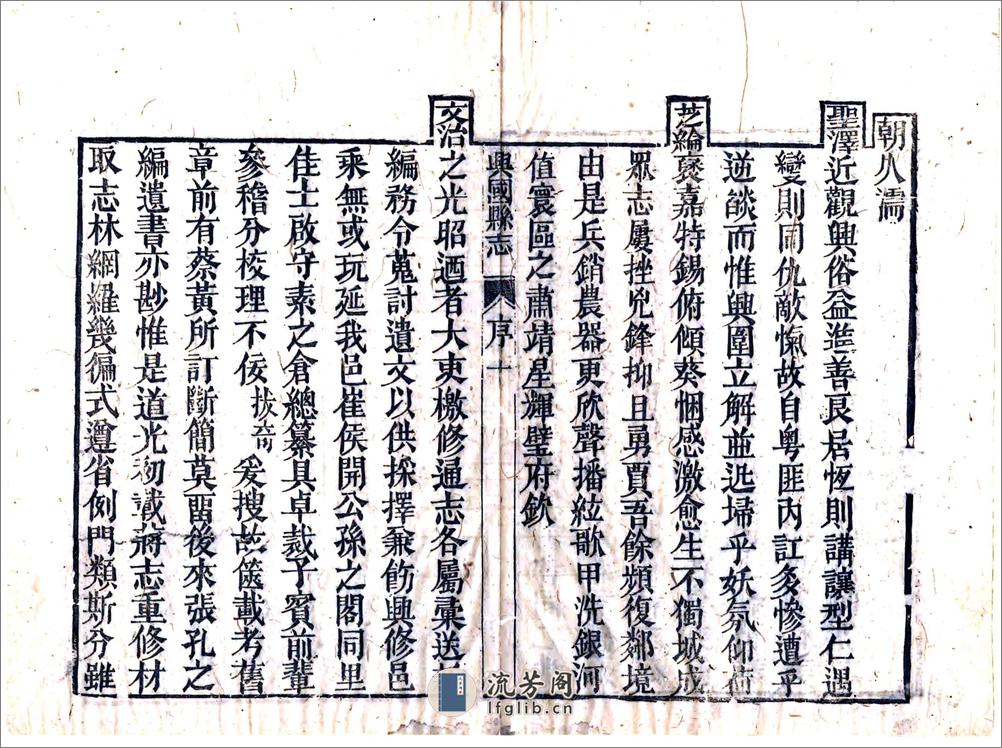 朝久濡
聖澤近觀興俗益進善良居恆則講讓型仁遇
變則同仇敵愾故自粵匪內訌亥慘遭乎
逆燄而惟興圍立解並迅埽乎妖氛仰荷
芝綸褒嘉特錫俯傾葵悃感激愈生不獨城成
眾志屢挫兇鋒抑且勇賈吾餘頻復鄰境
由是兵銷農器更欣聲播絃歌甲洗銀河
值寰區之肅靖星輝璧府欽
興國縣志 序 一
文治之光昭迺者大吏檄修通志各屬彙送
編務令蒐討遺文以供採擇兼飭興修邑
乘無或玩延我邑崔侯開公孫之閣同里
佳士啟守素之倉總纂具卓裁子賓前輩
參稽分校理不佞拔奇爰搜故篋載考舊
章前有蔡黃所訂斷簡莫畱後來張孔之
編遺書亦尠惟是道光初載蔣志重修材
取志林網羅幾徧式遵省例門類斯分雖
流芳阁
lfglib.cn